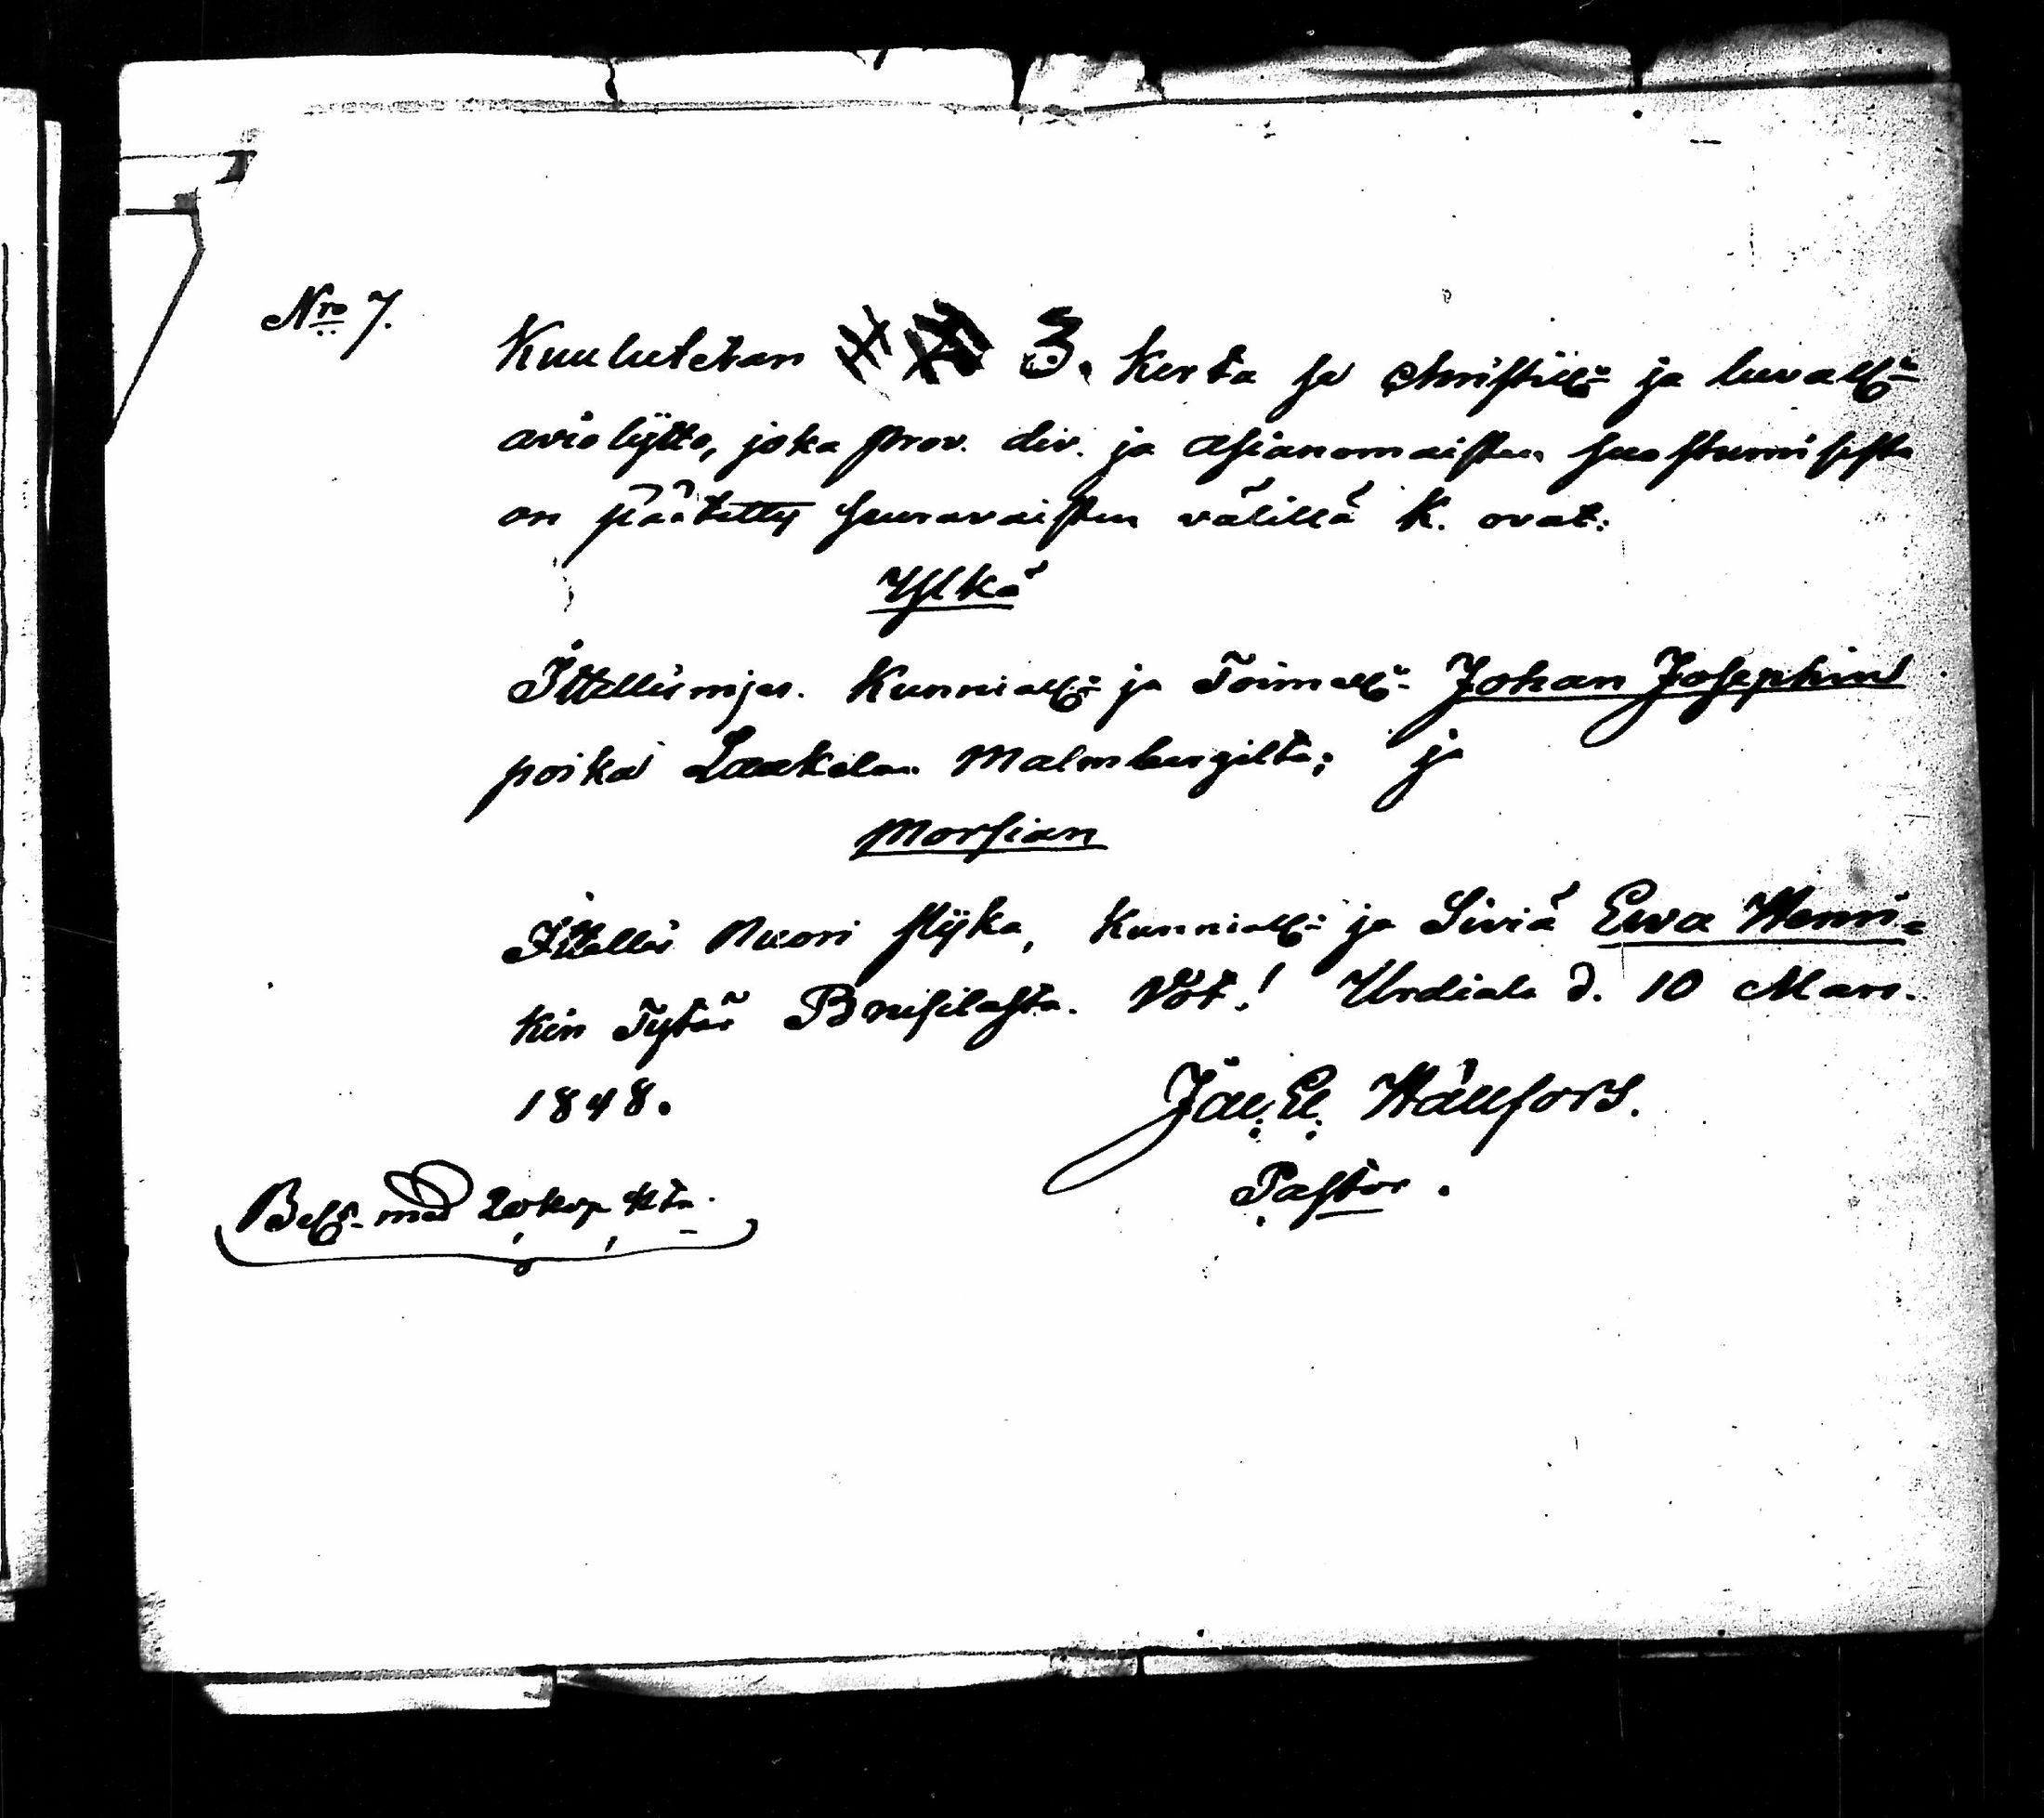 Nro 7.
Kuulutetan 3. kerta se christill: ja luvall:
aviolijtto, joka prov. div. ja asianomaisten suostumisesta
on päätetty seuravaisten välillä k. ovat:
Ylkä
Ittellismjes. kunniall: ja Toimell: Johan Josephin
poika Laukelan Malmbergilta; ja
Morsian
Ittellis Nuori pijka, kunniall: ja Siviä Ewa Henri=
kin Tytär Bruisilasta. Vot.! Urdiala d. 10 Mars.
1848.
Pastor.
Bes: med 20 kop